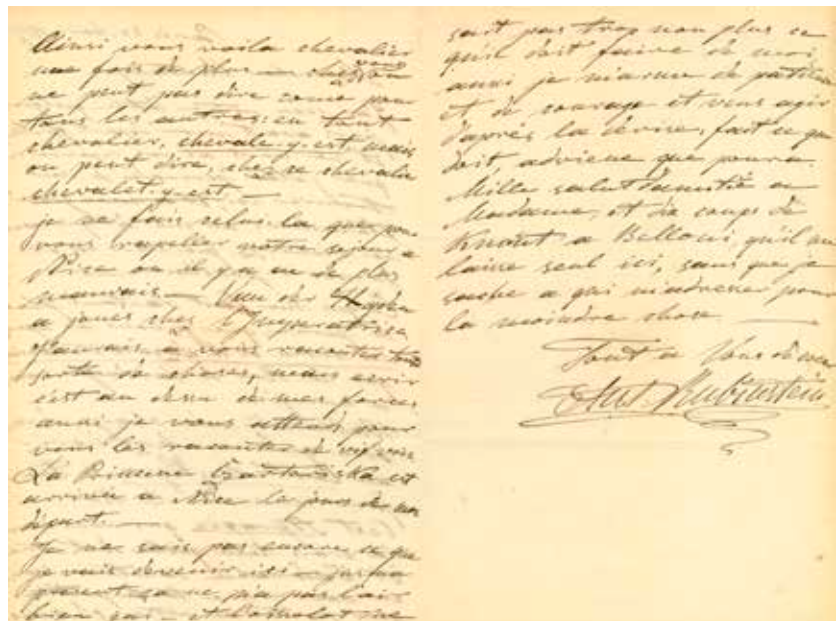 Ainsi vous voila chevalier
une fois de plus — chez vous on
ne peut pas dire come pour
tous les autres: en tout
chevalier, chevale y est mais
on peut dire, chez ce chevalier
chevalet y est —
je ne fais celui-la que pour
vous rapeller notre sejour a
Nice ou il y a eu de plus
mauvais — Van der
a joues chez l'Imperatrice
J'aurais a vous raconter
sorte de choses, mais ecrir
c'est au desu de mes forces
aussi je vous attends pour
vous les raconter de vif voix
La Princesse est
arrivée a Nice le jours de mon
départ. —
Je ne sais pas encore ce que
je vais devenir ici — jusqu'a
present ça ne m'a pas l'air
bien gai — et
sait pas trop non plus ce
qu'il doit faire de moi
aussi je m'arme de patience
et de courage et veux agir
d'après la devise, fait ce que
doit adviene que poura.
Mille salut d'amitié a
Madame, et dix coups de
Knout a Belloni, qu'il me
laisse seul ici, sans que je
sache a qui m'adresser pour
la moindre chose. —
Tout a Vous de cœur
Ant. Rubinstein